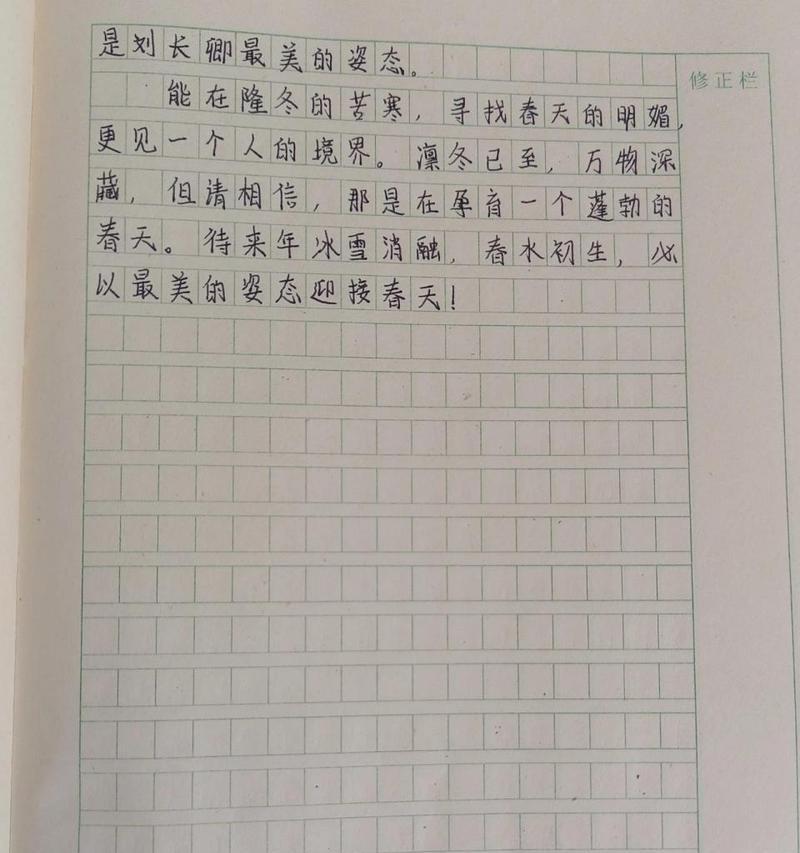 是刘长卿最美的姿态。
能在隆冬的苦寒,寻找春天的明媚,
更见一个人的境界。凛冬已至,万物深
藏,但请相信,那是在孕育一个蓬勃的
春天。待来年冰雪消融,春水初生,必
以最美的姿态迎接春天!
修正栏